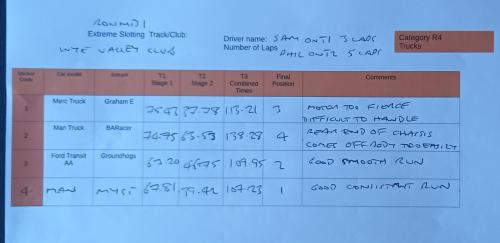 RONMIDI
Extreme Slotting Track/Club:
WYE VALLEY CLUB
Driver name: SAM ONTI 3 LAPS
Number of Laps PHIL ONTZ 5 LAPS
Category R4
Trucks
Sticker Code Car model Entrant T1 Stage 1 T2 Stage 2 T3 Combined Times Final Position Comments
1 Merc Truck Graham E 37.78 113.21 3 MOTOR TOO FIERCE
DIFFICULT TO HANDLE
2 Man Truck BARacer 74.75 63.53 138.28 4 REAR END OF CHASSIS
COMES OFF BODY TOO EASILY
3 Ford Transit AA Groundhogs 63.20 46.75 109.95 2 GOOD SMOOTH RUN
4 MAN MYST 67.81 39.42 107.23 1 GOOD CONSISTANT RUN